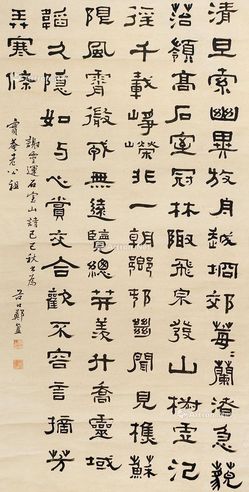 清旦索幽異放舟越坰郊莓〻蘭渚急藐〻
苔嶺高石室冠林陬飛泉發山樹虛氾
徑千載崢嶸非一朝鄉邨幽聞見樵蘇
限風霄微戎無遠覽總笄羨升喬靈域
韜久隱如与心賞交合歡不容言摘芳
弄寒條
謝靈運石室山詩己巳秋書為
菴老公祖
谷口鄭簠